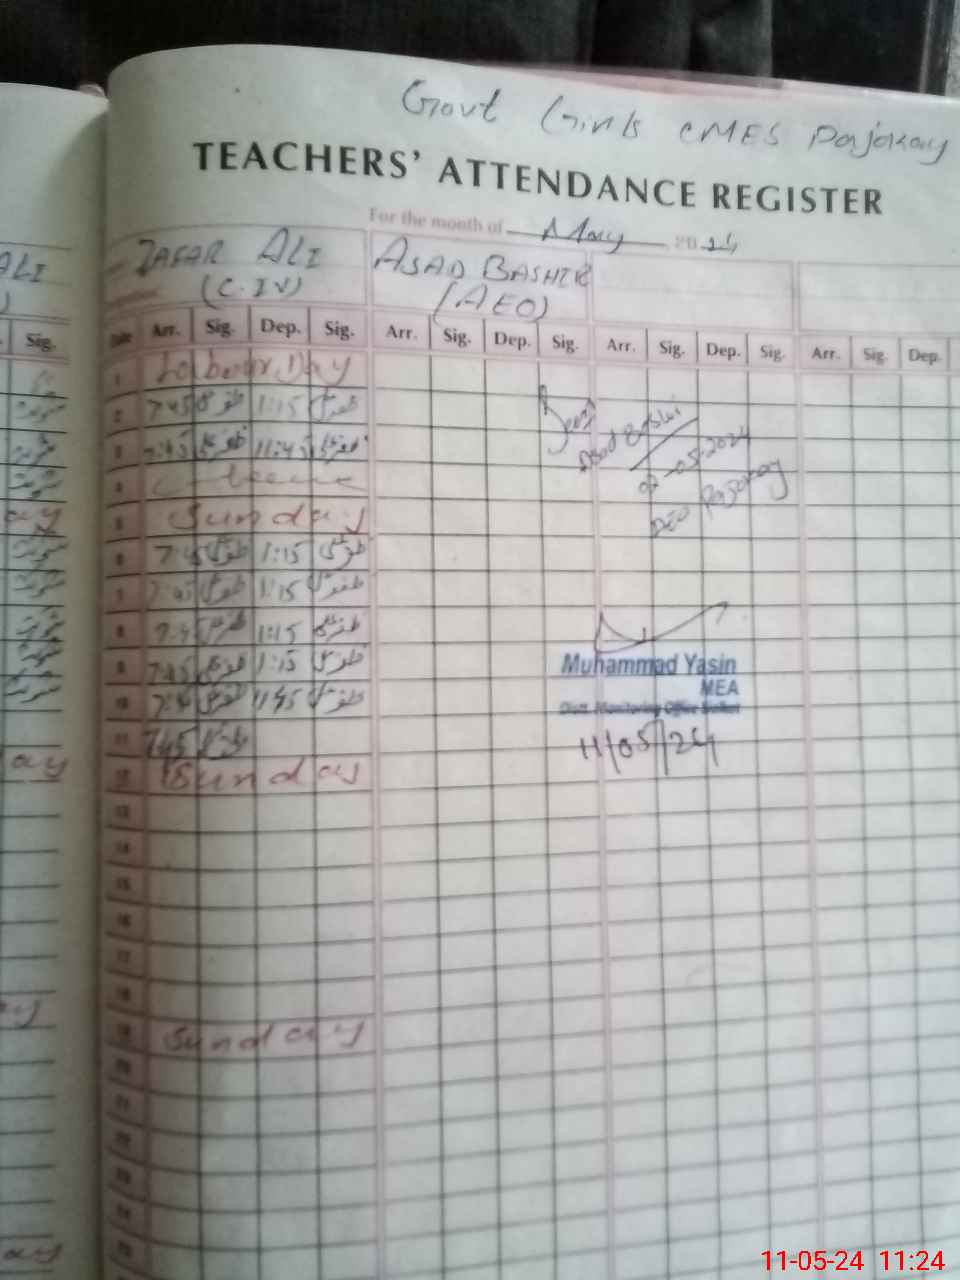 Govt Girls CMES Pajokay
TEACHERS' ATTENDANCE REGISTER
For the month of May, 2024
ALI ZAFAR ALI ASAD BASHIR
(C.IV) (AEO)
Sig. Date Arr. Sig. Dep. Sig. Arr. Sig. Dep. Sig. Arr. Sig. Dep. Sig. Arr. Sig. Dep.
1 Labour Day
2 7:45 ظفر علی 1:15 ظفر علی
3 7:45 ظفر علی 11:45 ظفر علی
Asad Bashir
02-05-2024
AEO Pajokay
4
5 Sunday
6 7:45 ظفر علی 1:15 ظفر علی
7 7:45 ظفر علی 1:15 ظفر علی
8 7:45 ظفر علی 1:15 ظفر علی
9 7:45 ظفر علی 1:15 ظفر علی
Muhammad Yasin
MEA
10 7:45 ظفر علی 11:45 ظفر علی
Distt. Monitoring Office
11 7:45 ظفر علی
11/05/24
12 Sunday
13
14
15
16
17
18
19 Sunday
20
21
22
23
24
25
11-05-24 11:24